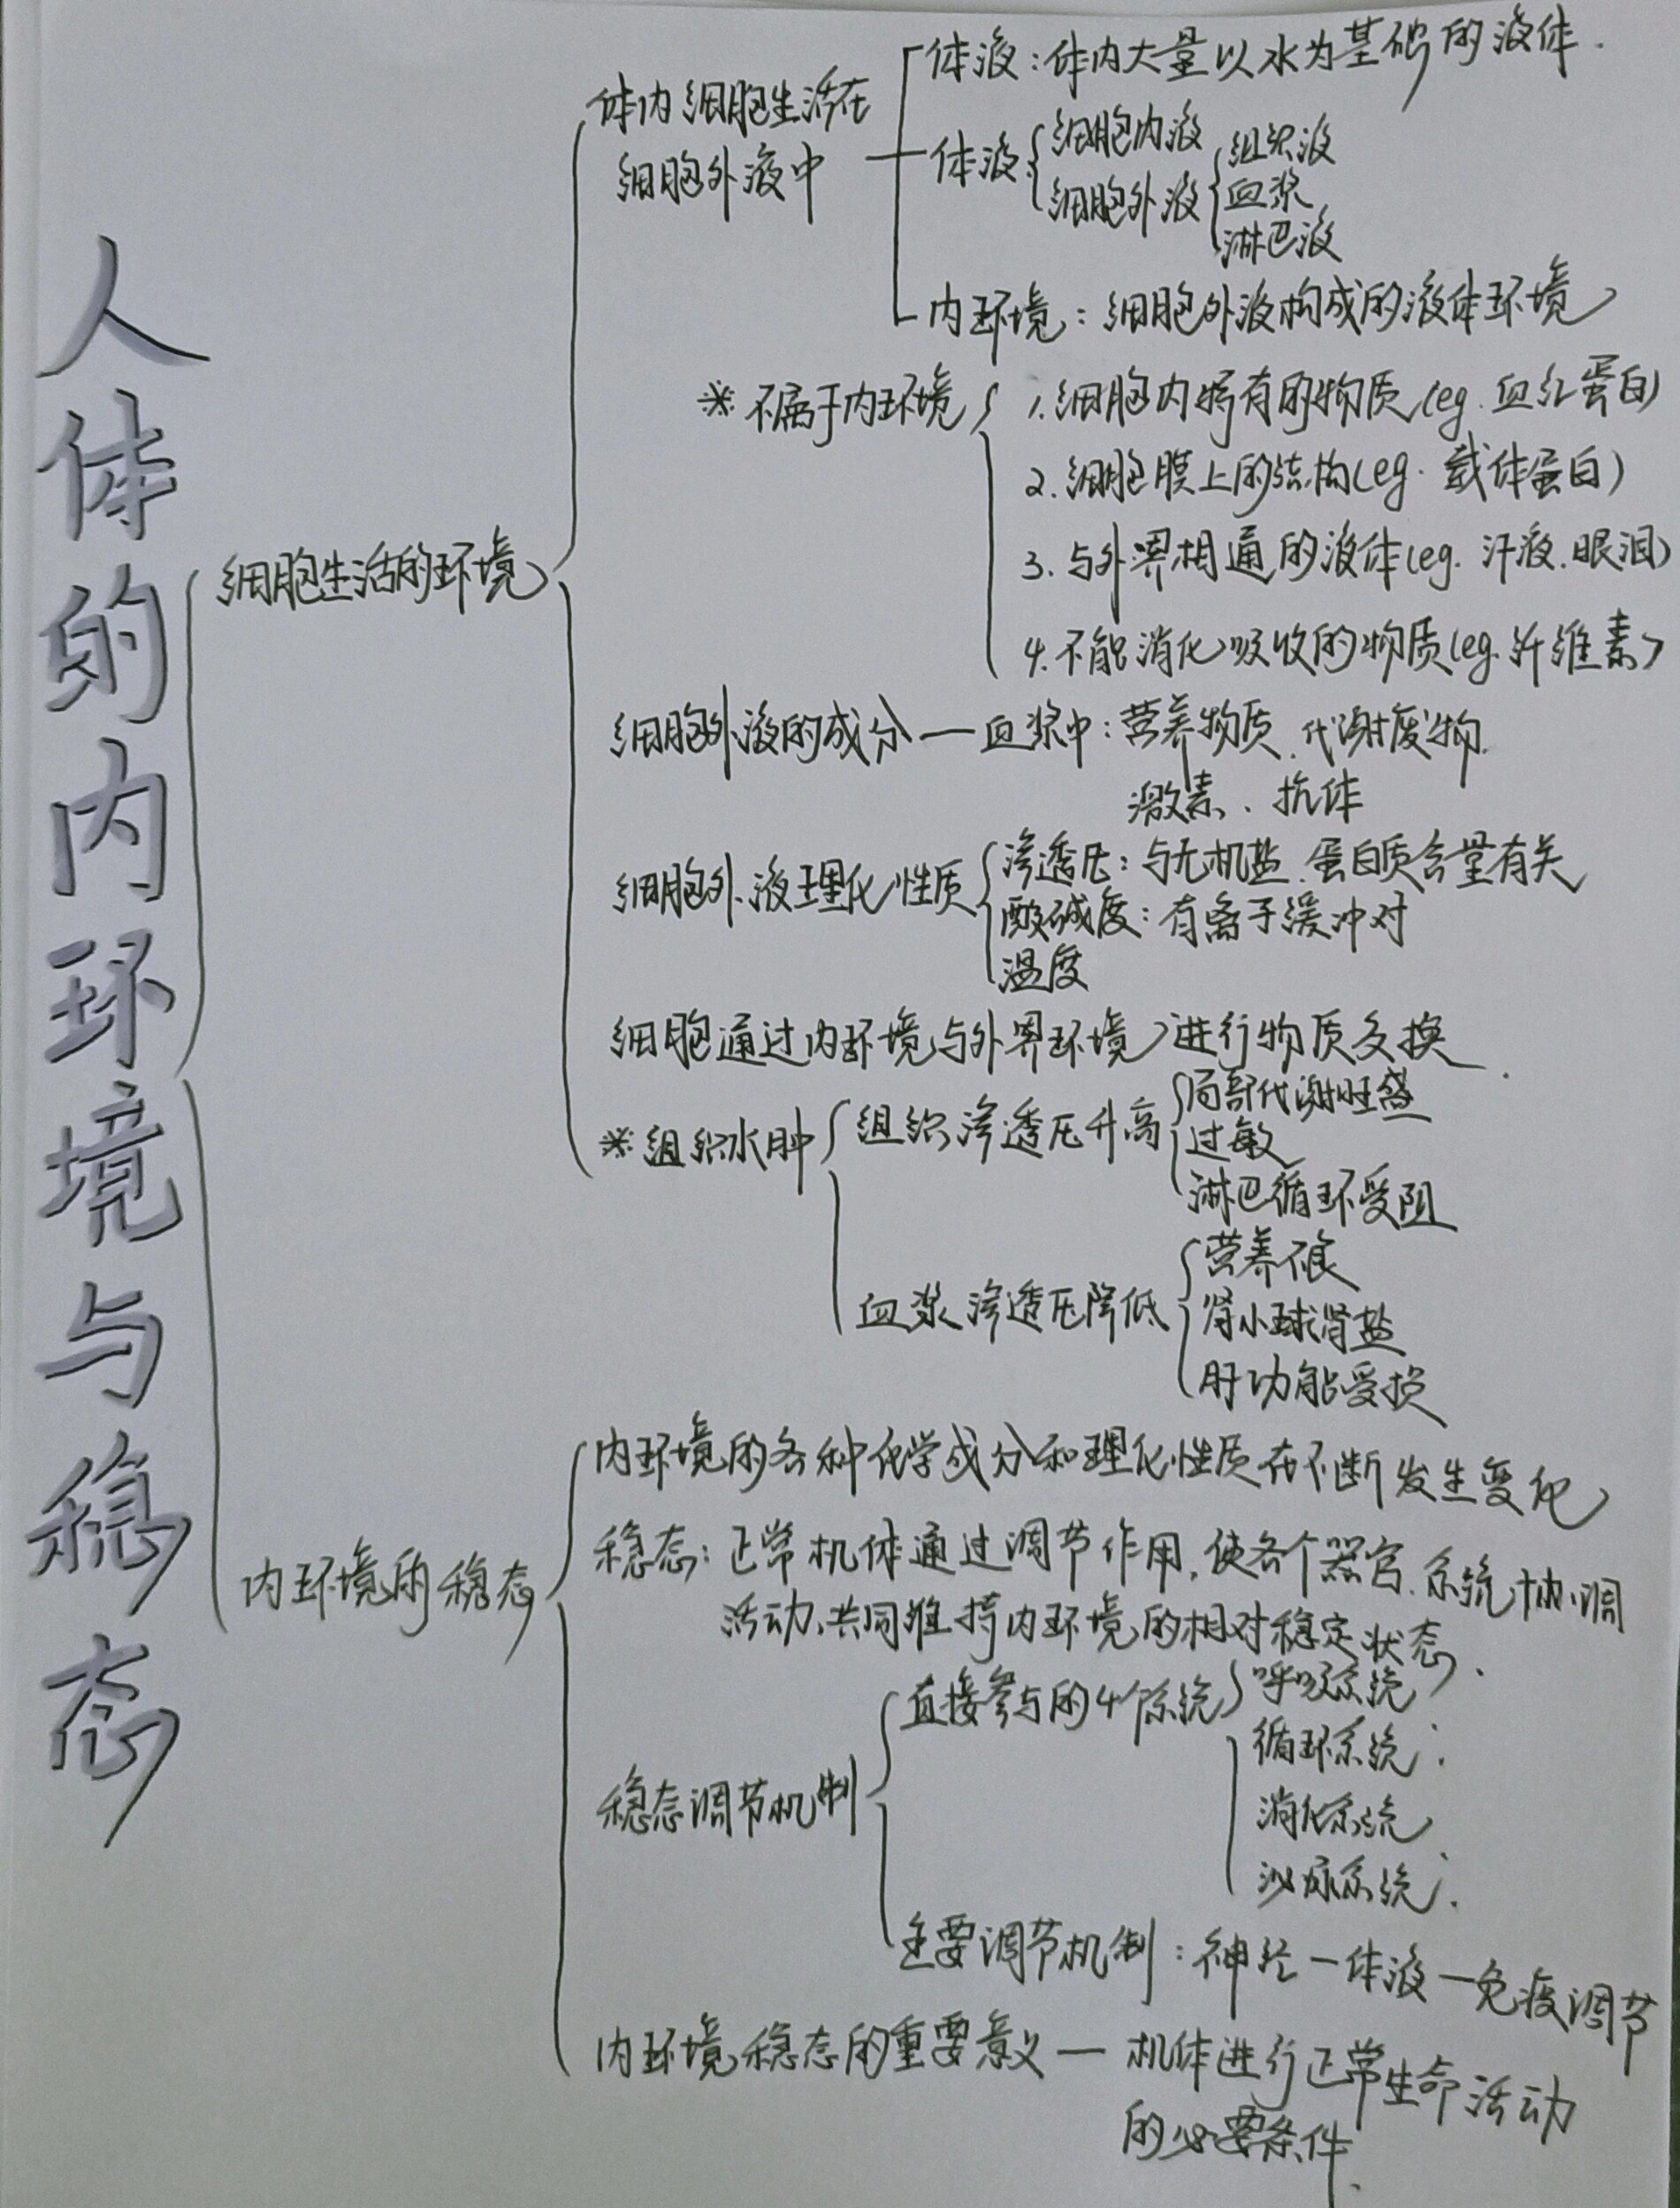 人体的内环境与稳态
细胞生活的环境
体内细胞生活在
细胞外液中
体液：体内大量以水为基础的液体．
体液
细胞内液
细胞外液
组织液
血浆
淋巴液
内环境：细胞外液构成的液体环境
※ 不属于内环境
1. 细胞内特有的物质(eg. 血红蛋白)
2. 细胞膜上的结构(eg. 载体蛋白)
3. 与外界相通的液体(eg. 汗液．眼泪)
4. 不能消化吸收的物质(eg. 纤维素)
细胞外液的成分 — 血浆中：营养物质．代谢废物．
激素、抗体
细胞外液理化性质
渗透压：与无机盐．蛋白质含量有关
酸碱度：有离子缓冲对
温度
细胞通过内环境与外界环境进行物质交换．
※ 组织水肿
组织渗透压升高
局部代谢旺盛
过敏
淋巴循环受阻
血浆渗透压降低
营养不良
肾小球肾
肝功能受损
内环境的稳态
内环境的各种化学成分和理化性质在不断发生变化
稳态：正常机体通过调节作用，使各个器官．系统协调
活动、共同维持内环境的相对稳定状态．
稳态调节机制
直接参与的4个系统
呼吸系统
循环系统．
消化系统
泌尿系统．
主要调节机制：神经—体液—免疫调节
内环境稳态的重要意义 — 机体进行正常生命活动
的必要条件．